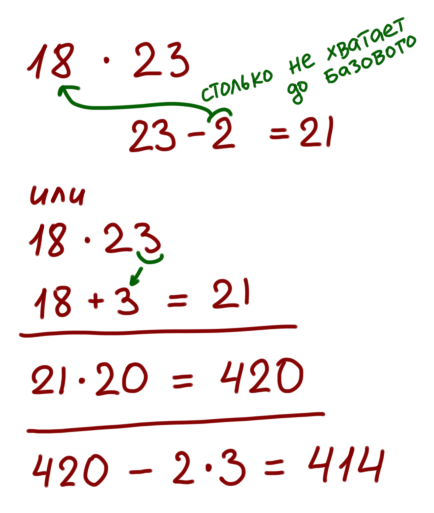 18 · 23
столько не хватает
до базового
23 - 2 = 21
или
18 · 23
18 + 3 = 21
21 · 20 = 420
420 - 2 · 3 = 414